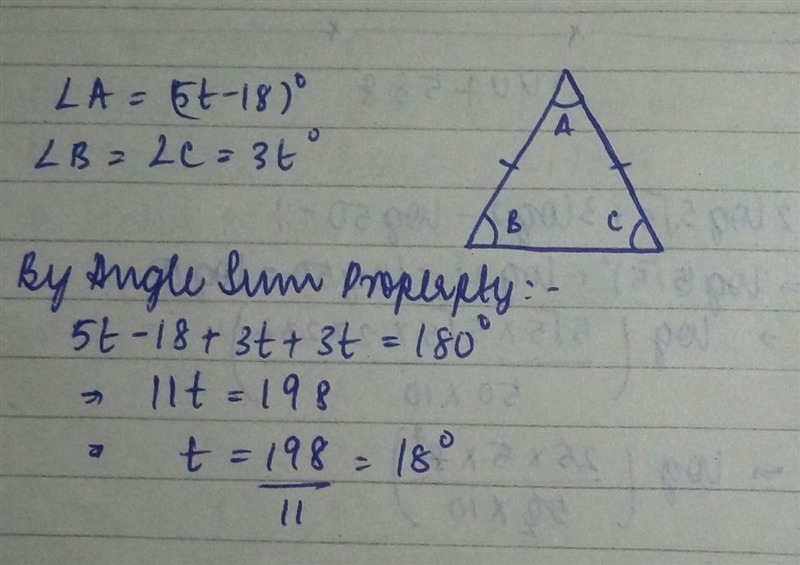 ∠A = (5t-18)°
∠B = ∠C = 3t°
A
B C
By Angle Sum Property:-
5t-18+3t+3t = 180°
⇒ 11t = 198
⇒ t = 198/11 = 18°